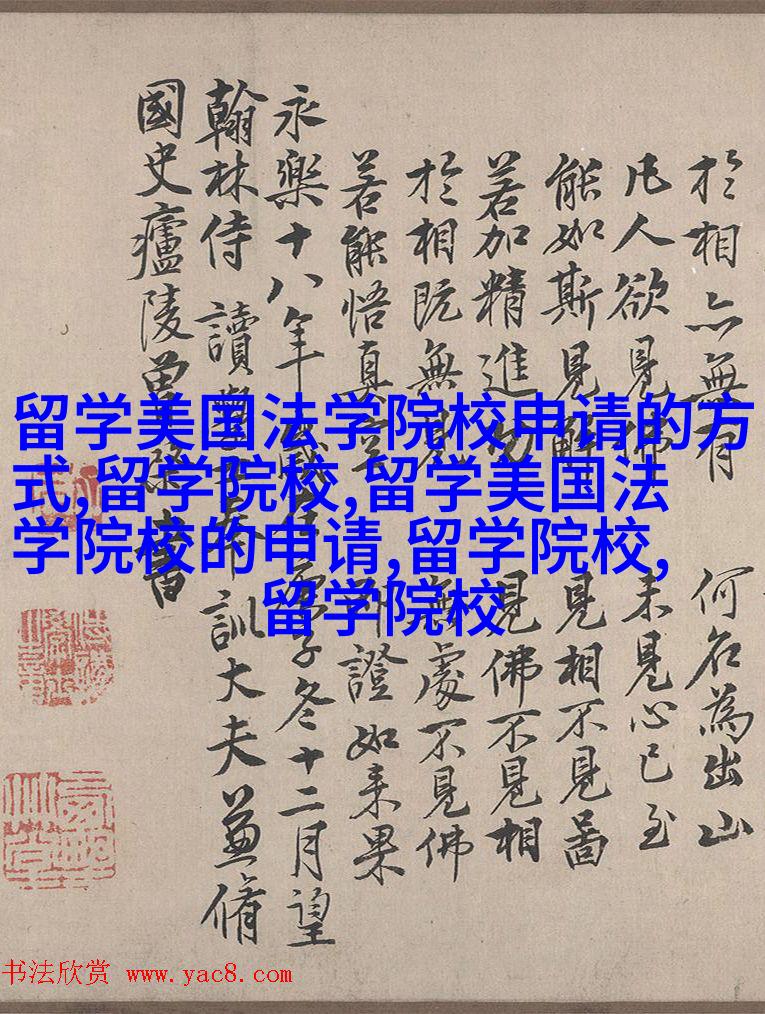 於相亦無有 何名為出山
凡人欲見佛 未見心已至
能如斯見解 見相不見啚
若加精進力 見佛不見相
於相既無見 無處不見佛
若能悟真空 即證如来果
永樂十八年歲在庚子冬十二月望
翰林侍讀學士奉訓大夫兼脩
國史廬陵曾棨書
留学美国法学院校申请的方
式,留学院校,留学美国法
学院校的申请,留学院校,
留学院校
书法欣赏 www.yac8.com